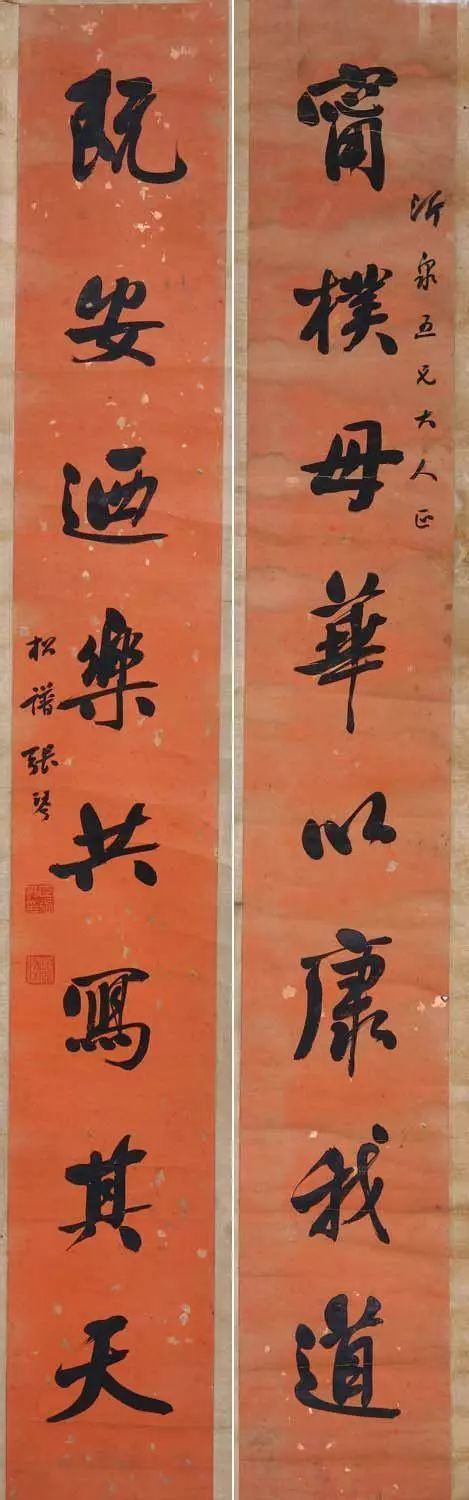 沂泉五兄大人正
甯樸毋華以康我道
既安迺樂共寫其天
松譜張琴